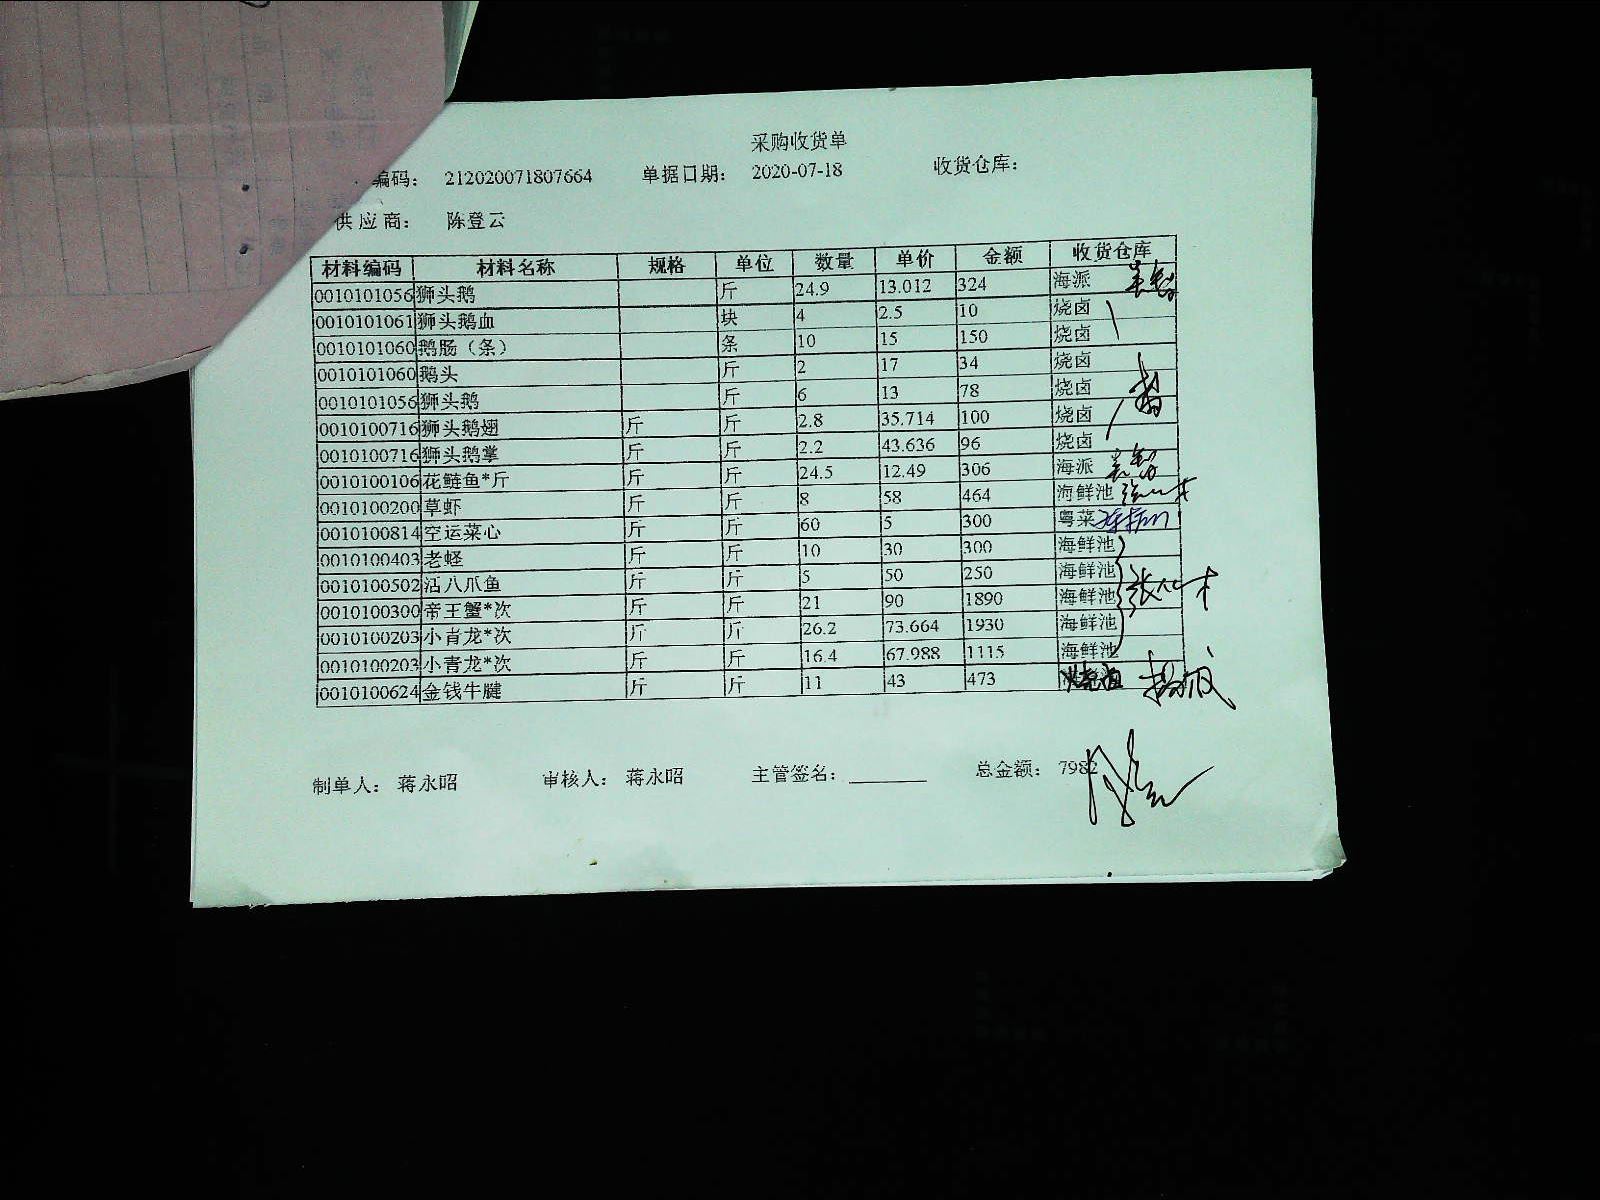 采购收货单
编码： 212020071807664 单据日期： 2020-07-18 收货仓库：
供应商： 陈登云
材料编码 材料名称 规格 单位 数量 单价 金额 收货仓库
0010101056 狮头鹅 斤 24.9 13.012 324 海派
0010101061 狮头鹅血 块 4 2.5 10 烧卤
0010101060 鹅肠（条） 条 10 15 150 烧卤
0010101060 鹅头 斤 2 17 34 烧卤
0010101056 狮头鹅 斤 6 13 78 烧卤
0010100716 狮头鹅翅 斤 斤 2.8 35.714 100 烧卤
0010100716 狮头鹅掌 斤 斤 2.2 43.636 96 烧卤
0010100106 花鲢鱼*斤 斤 斤 24.5 12.49 306 海派
0010100200 草虾 斤 斤 8 58 464 海鲜池
0010100814 空运菜心 斤 斤 60 5 300 粤菜
0010100403 老蛏 斤 斤 10 30 300 海鲜池
0010100502 活八爪鱼 斤 斤 5 50 250 海鲜池
0010100300 帝王蟹*次 斤 斤 21 90 1890 海鲜池
0010100203 小青龙*次 斤 斤 26.2 73.664 1930 海鲜池
0010100203 小青龙*次 斤 斤 16.4 67.988 1115 海鲜池
0010100624 金钱牛腱 斤 斤 11 43 473
制单人： 蒋永昭 审核人： 蒋永昭 主管签名： 总金额： 7982